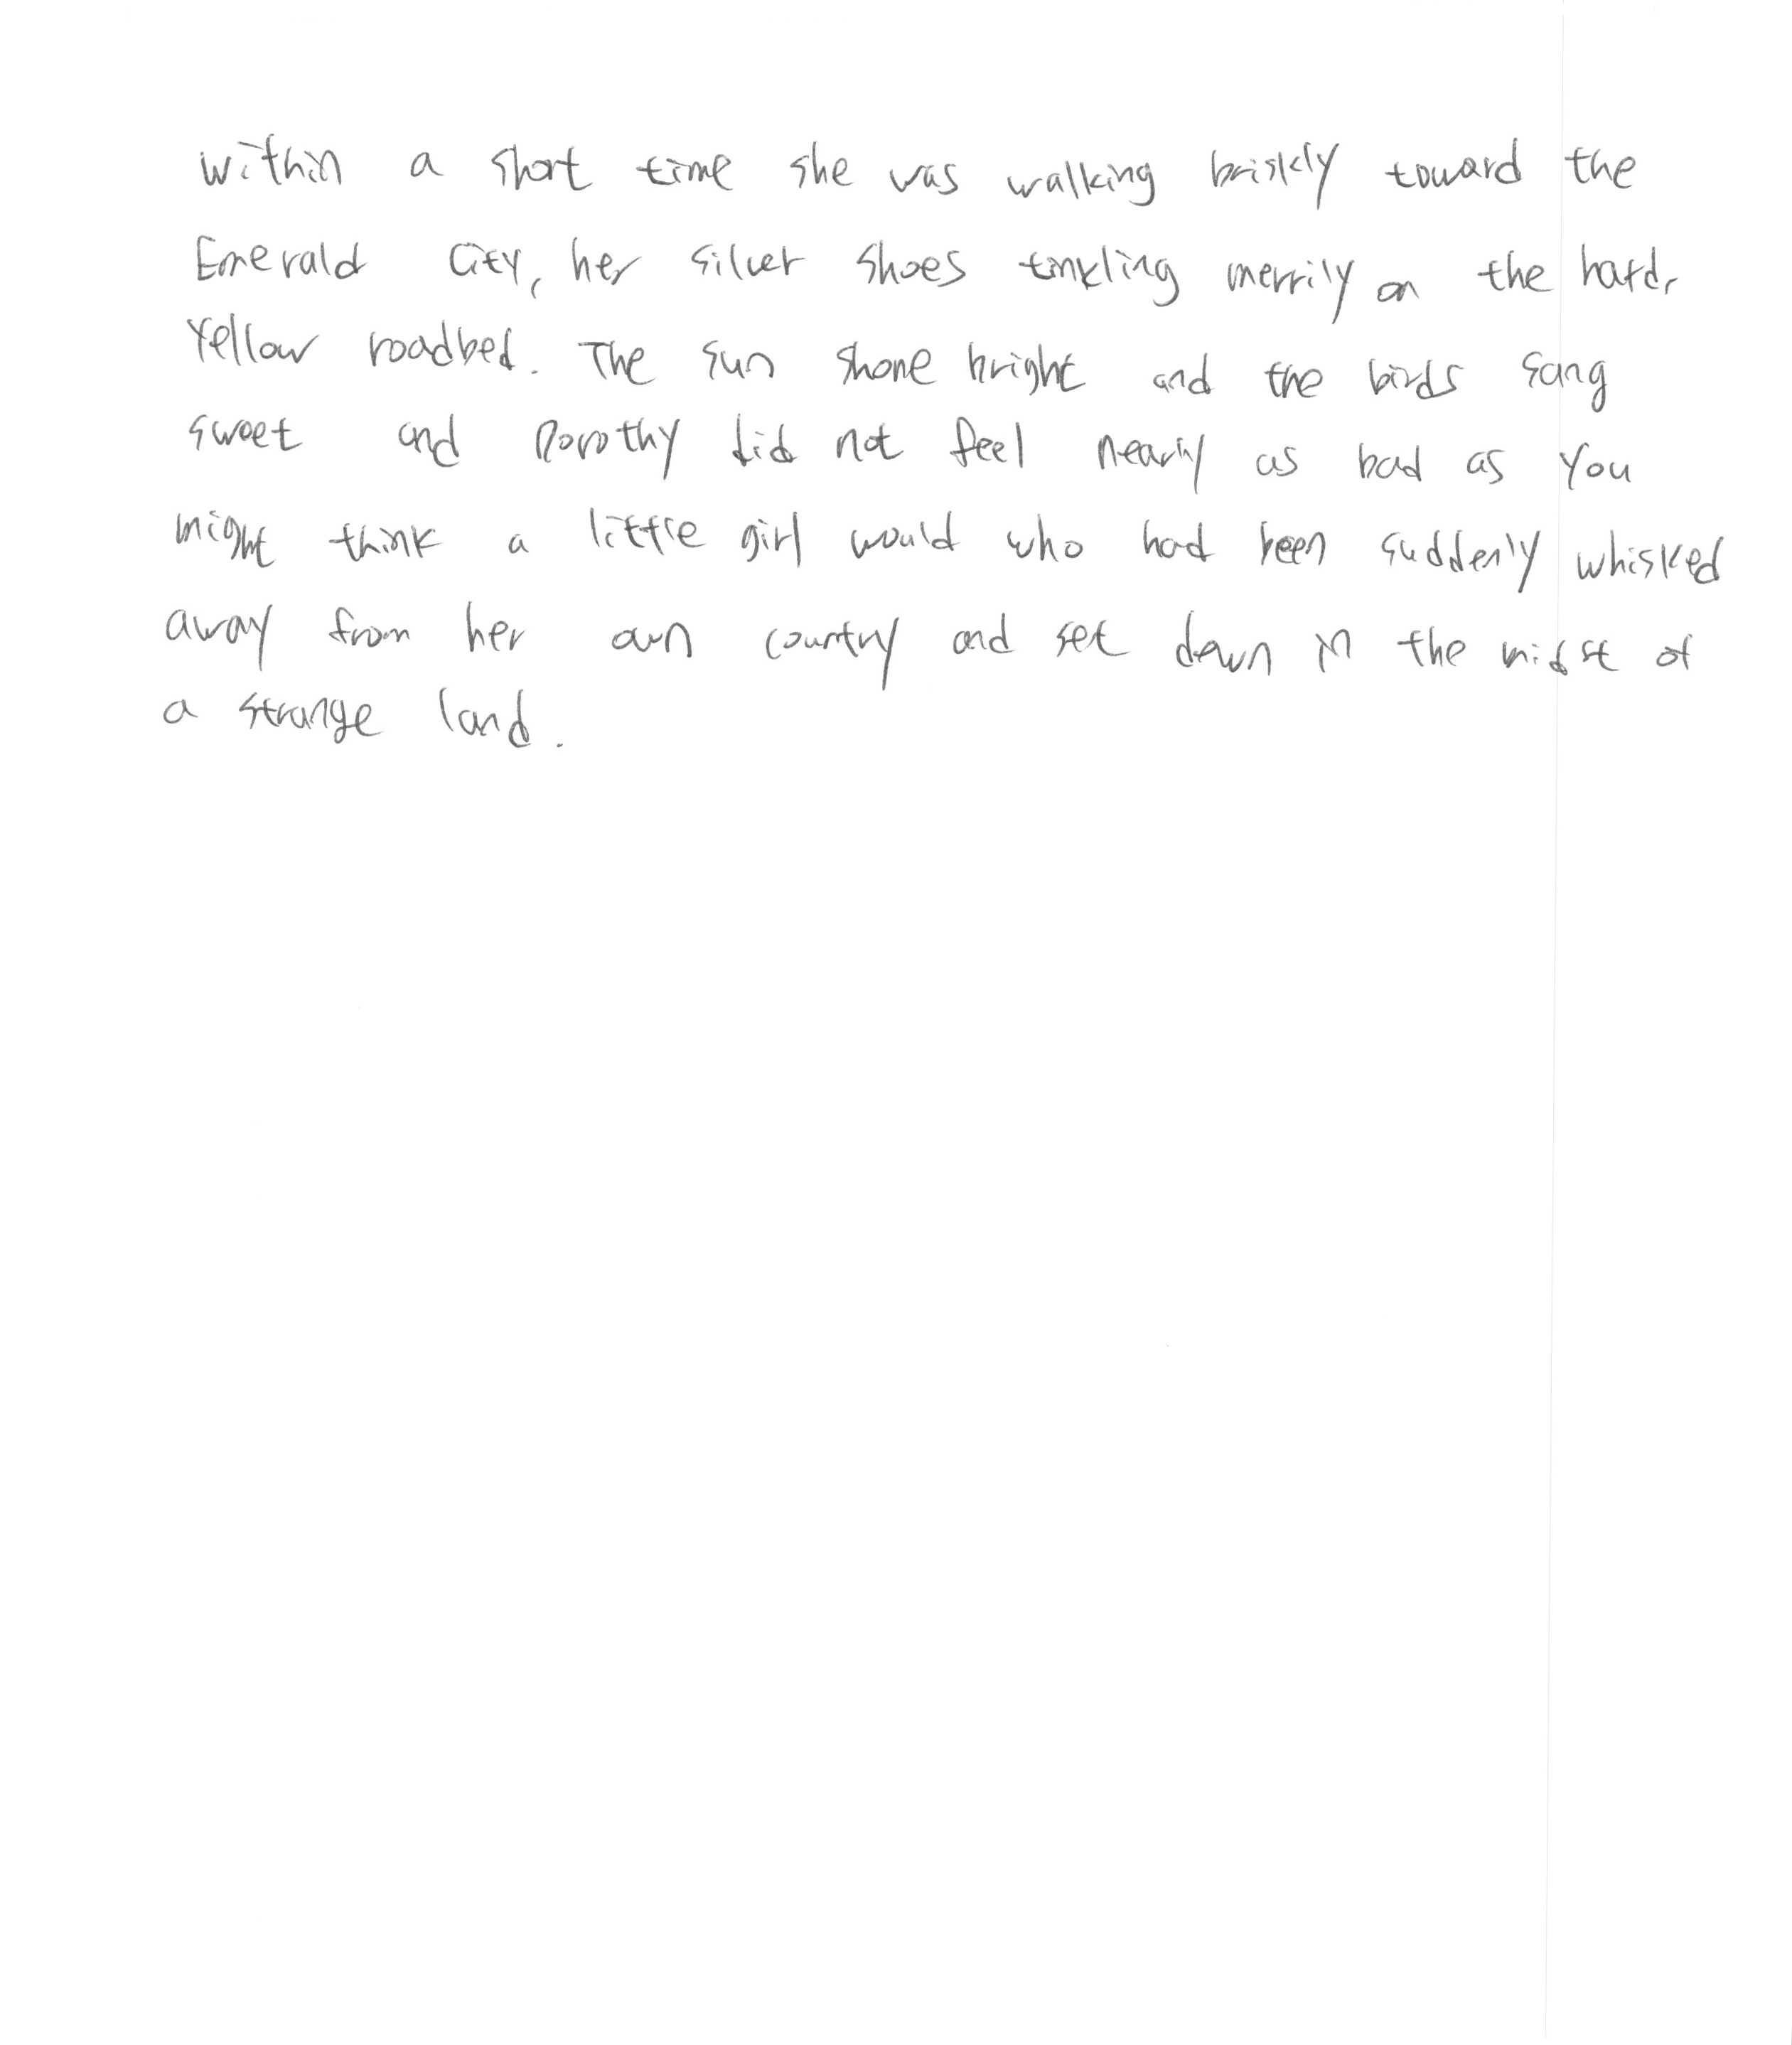 within a short time she was walking briskly toward the
Emerald City, her silver shoes tinkling merrily on the hard,
Yellow roadbed. The sun shone bright and the birds sang
sweet and Dorothy did not feel nearly as bad as you
might think a little girl would who had been suddenly whisked
away from her own country and set down in the midst of
a strange land.